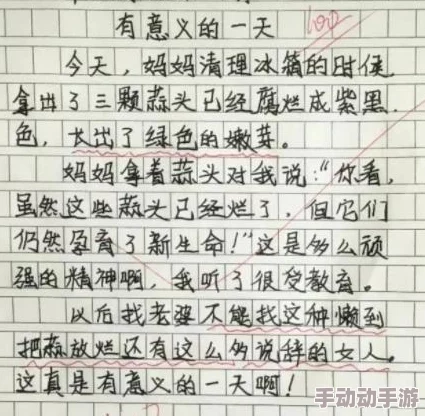 有意义的一天
100
今天，妈妈清理冰箱的时侯，
拿出了三颗蒜头已经腐烂成紫黑
色，长出了绿色的嫩芽。
妈妈拿着蒜头对我说：“你看，
虽然这些蒜头已经烂了，但它们
仍然孕育了新生命！”这是多么顽
强的精神啊，我听了很受教育。
以后找老婆不能找这种懒到
把蒜放烂还有这么多说辞的女人。
这真是有意义的一天啊！
手动动手游